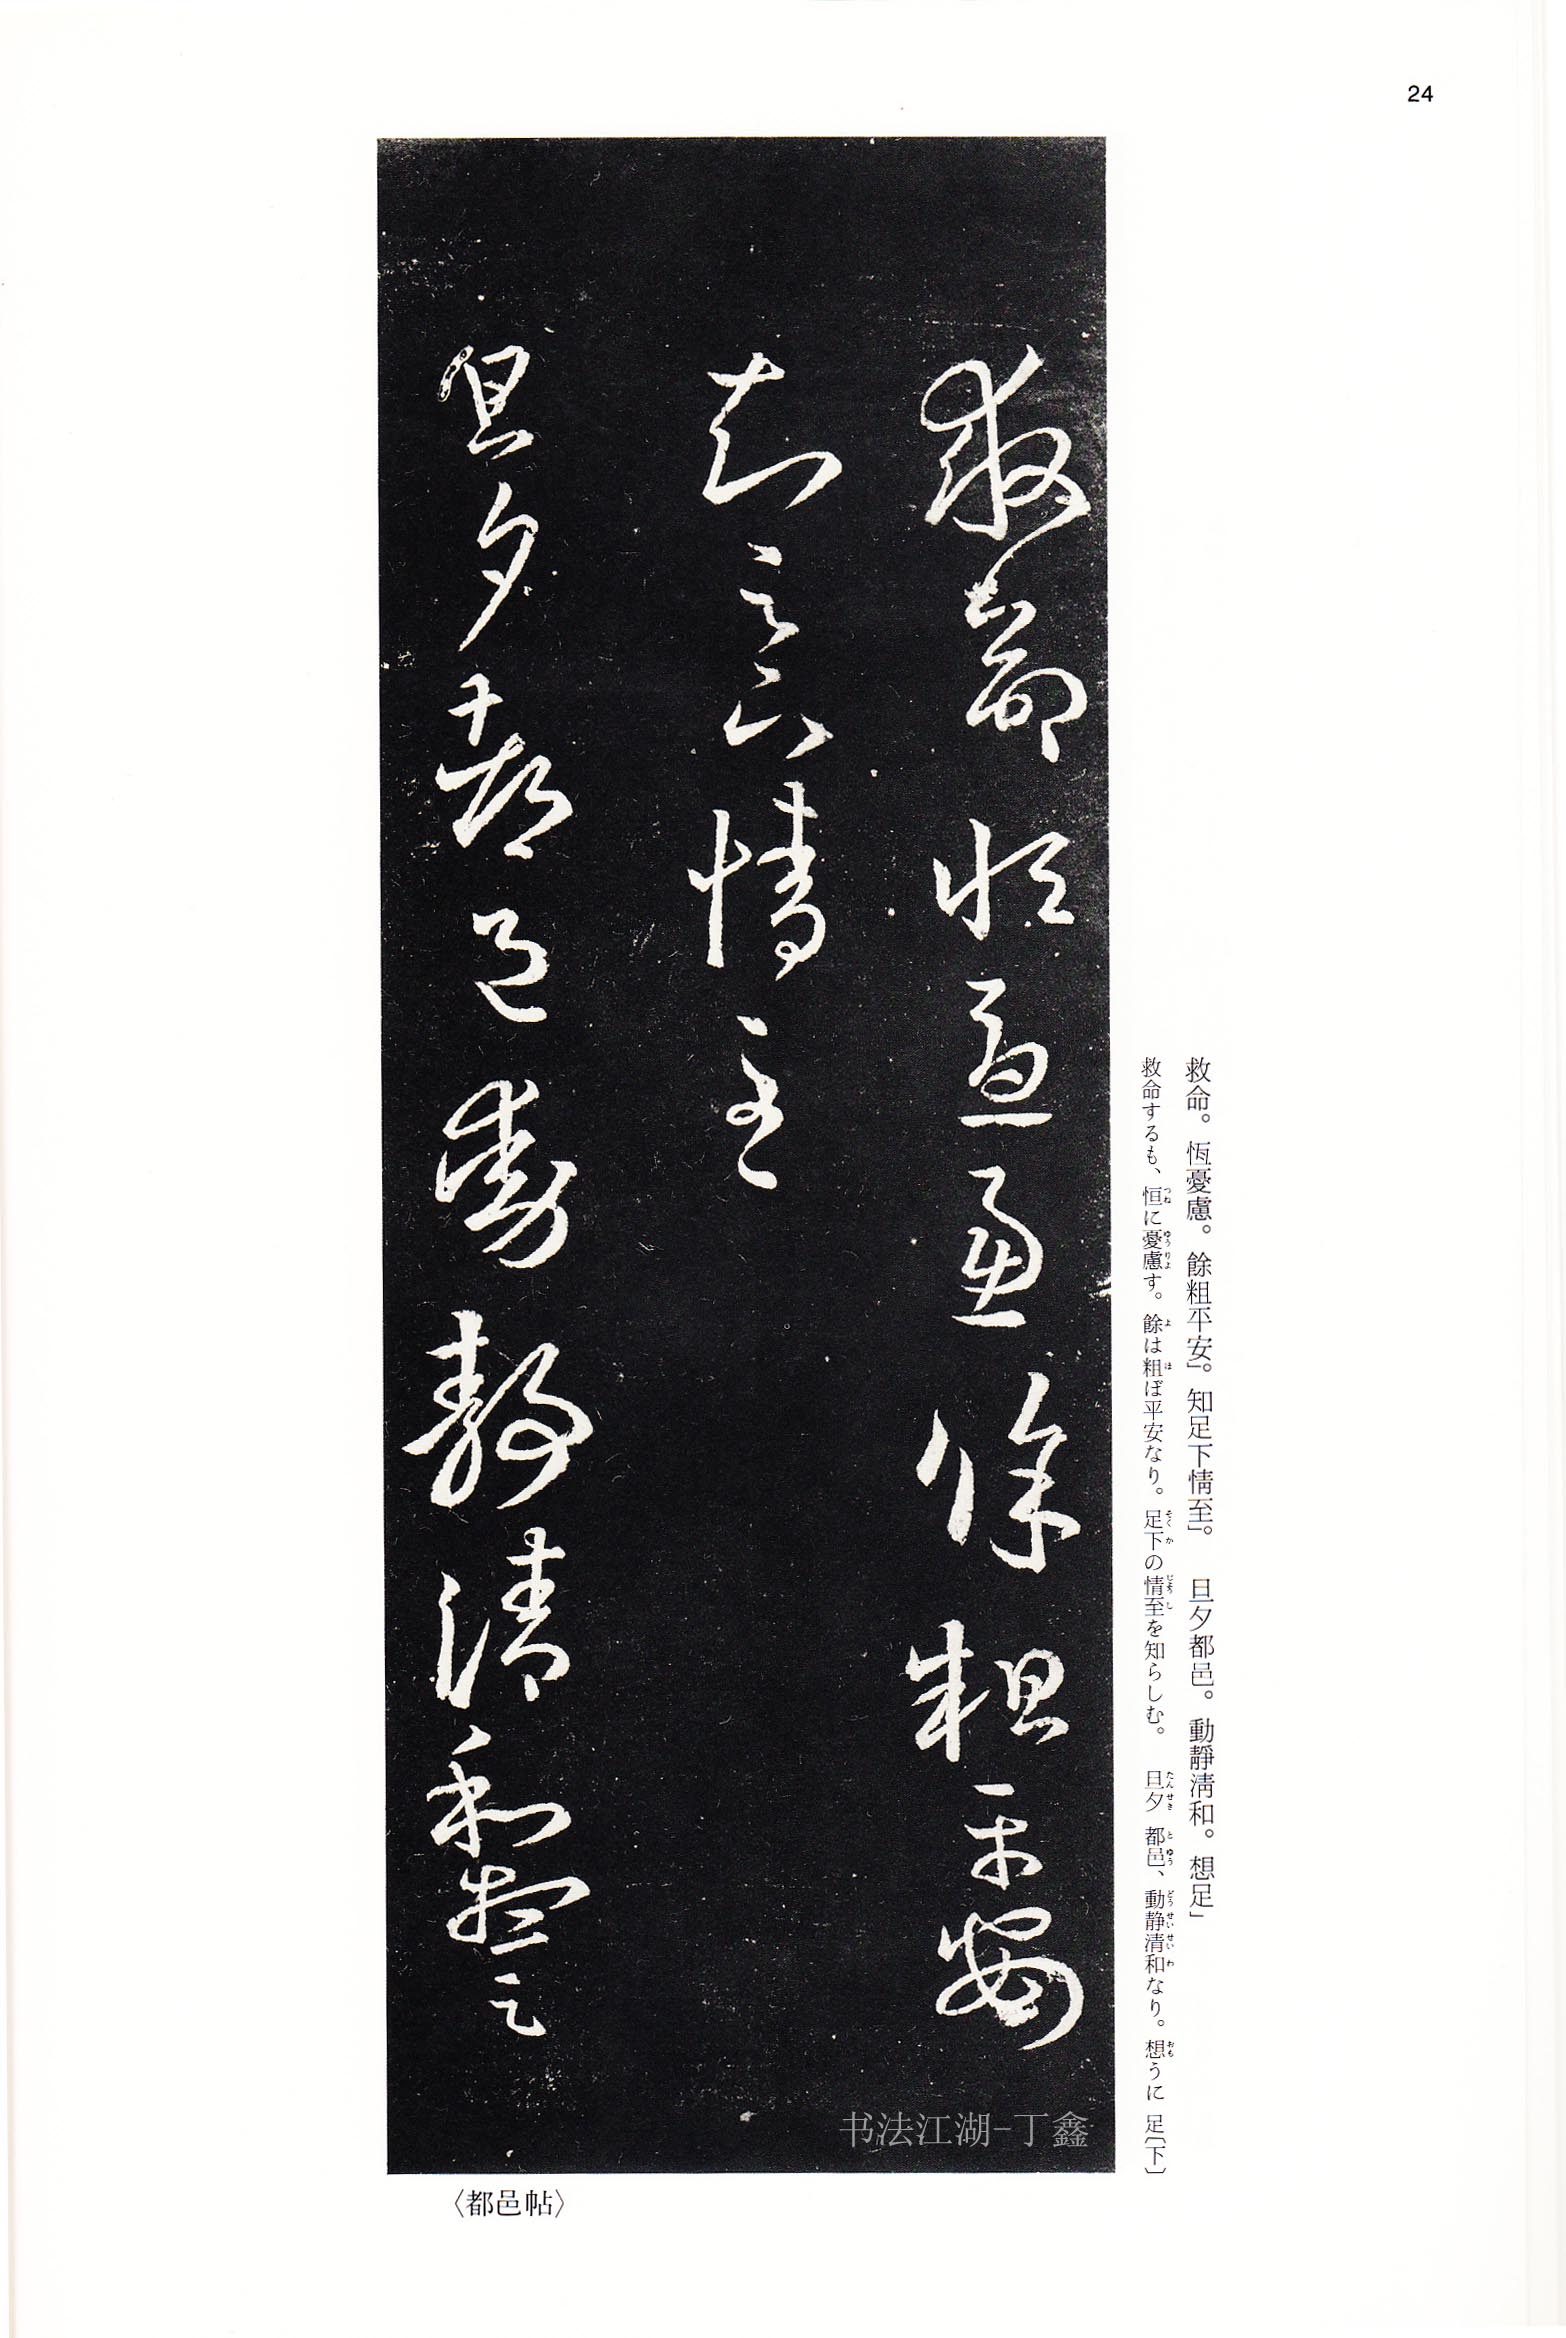 24
救命。恆憂慮。餘粗平安』。知足下情至』。　旦夕都邑。動靜淸和。想足」
救命するも、恒に憂慮す。餘は粗ぼ平安なり。足下の情至を知らしむ。　旦夕　都邑、動静清和なり。想うに　足〔下〕
救命恆憂慮餘粗平安
知足下情至
旦夕都邑動靜清和想足
书法江湖-丁鑫
〈都邑帖〉